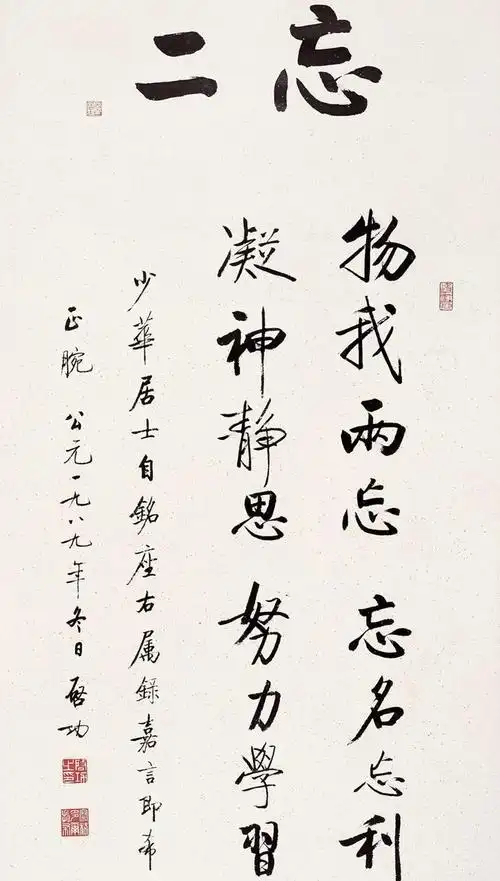 忘二
物我兩忘 忘名忘利
凝神靜思 努力學習
少華居士自銘座右属錄嘉言即希
正腕 公元一九八九年冬日 啓功